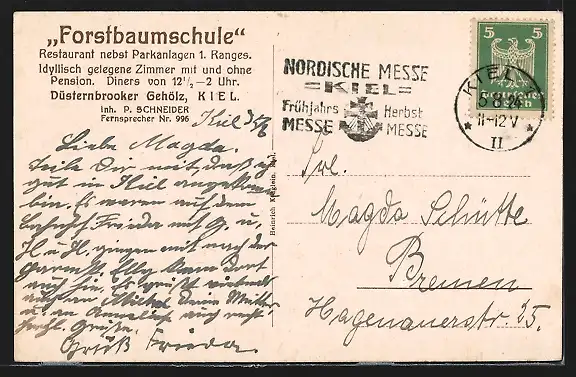 „Forstbaumschule"
Restaurant nebst Parkanlagen 1. Ranges.
Idyllisch gelegene Zimmer mit und ohne
Pension. Diners von 12 1/2—2 Uhr.
Düsternbrooker Gehölz, KIEL.
Inh. P. SCHNEIDER
Fernsprecher Nr. 996
Kiel
Liebe Magda.
Teile Dir mit, daß ich
gut in Kiel angekommen
bin. Es waren auf dem
Bahnhof Frieda mit G. u.
H. u. H. gingen mit nach der
Ella kam dort
auch hin. Es grüßt vielmals
Deine Mutter
u. auch recht
Grüße.
Gruß Frieda.
NORDISCHE MESSE
KIEL
Frühjahrs Herbst
MESSE MESSE
KIEL
5.8.24
11-12 V
II
5 5
Frl.
Magda Schütte
Bremen
Hagenauerstr. 25.